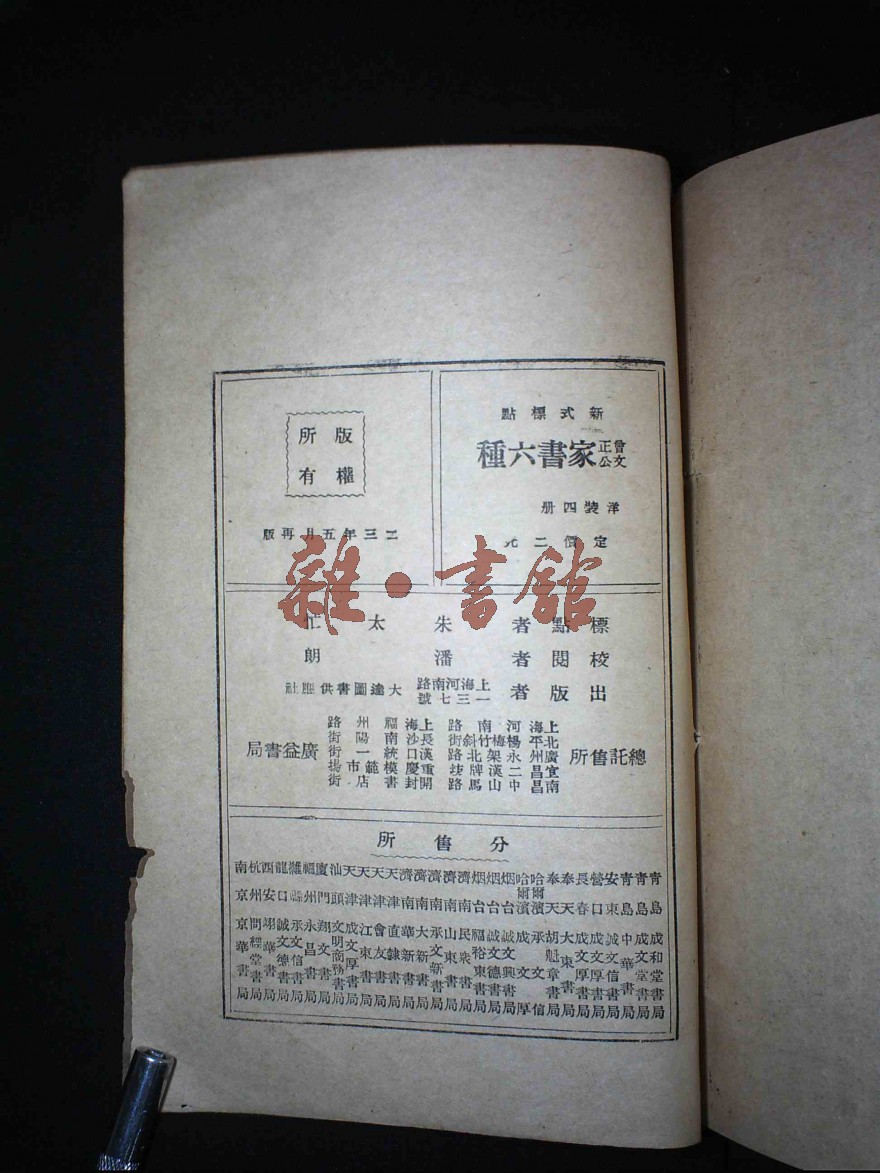 新式標點
曾文正公家書六種
洋裝四册
定價二元
版權所有
二三年五月再版
雜·書館
標點者 朱太忙
校閱者 潘朗
出版者 上海河南路一三七號 大達圖書供應社
總託售所
上海河南路
北平楊梅竹斜街
廣州永架北路
宜昌二漢牌坊
南昌中山馬路
上海福州路
長沙南陽街
漢口統一街
重慶模範市場
開封書店街
廣益書局
分售所
青島 成和堂書局
青島 成文堂書局
青島 中華書局
安東 誠文信書局
營口 成文厚書局
長春 成文厚書局
奉天 大東書局
奉天 胡魁章書局
哈爾濱 承文信
哈爾濱 成文厚
烟台 誠文興書局
烟台 誠文德書局
烟台 福裕東書局
濟南 民衆書局
濟南 山東書局
濟南 承文新書局
濟南 大新書局
濟南 華新書局
天津 直隸書局
天津 會友書局
天津 江東書局
天津 成文厚書局
汕頭 文明商務書局
廈門 翔文書局
福州 永昌書局
龍口 誠文德書局
西安 翊華書局
杭州 問經堂書局
南京 京華書局